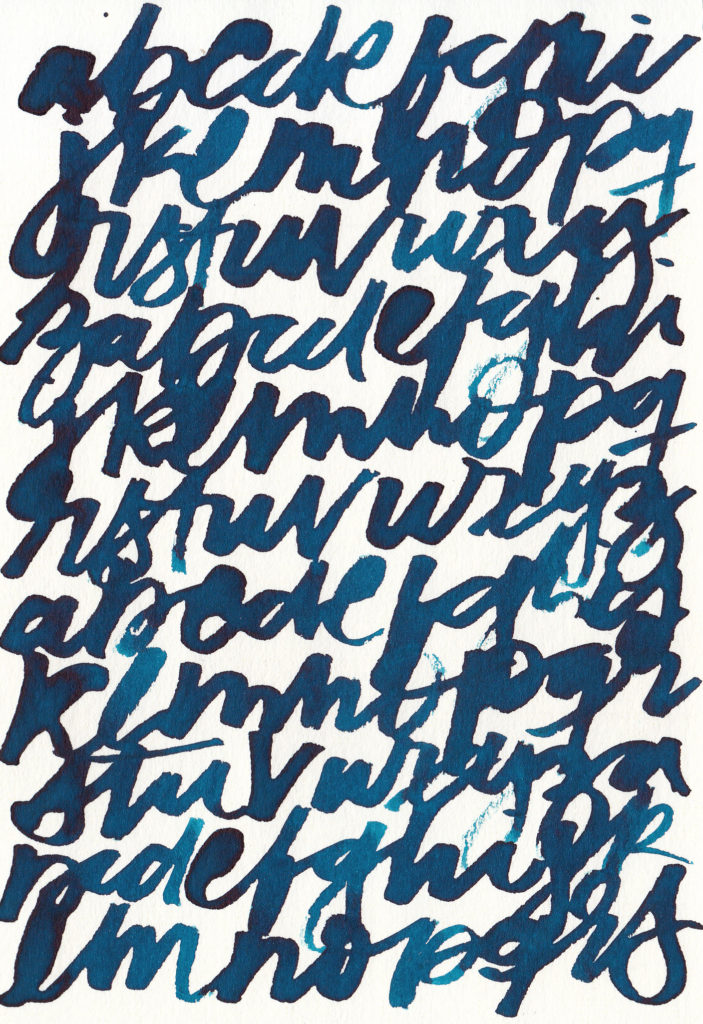 abcdefghi
jklmnopq
qrstuvwxy.
zabcdefghi
jklmnopq
rstuvwxyz
abcdefghij
klmnopqr
stuvwxyza
bcdefghijk
lmnopqrs